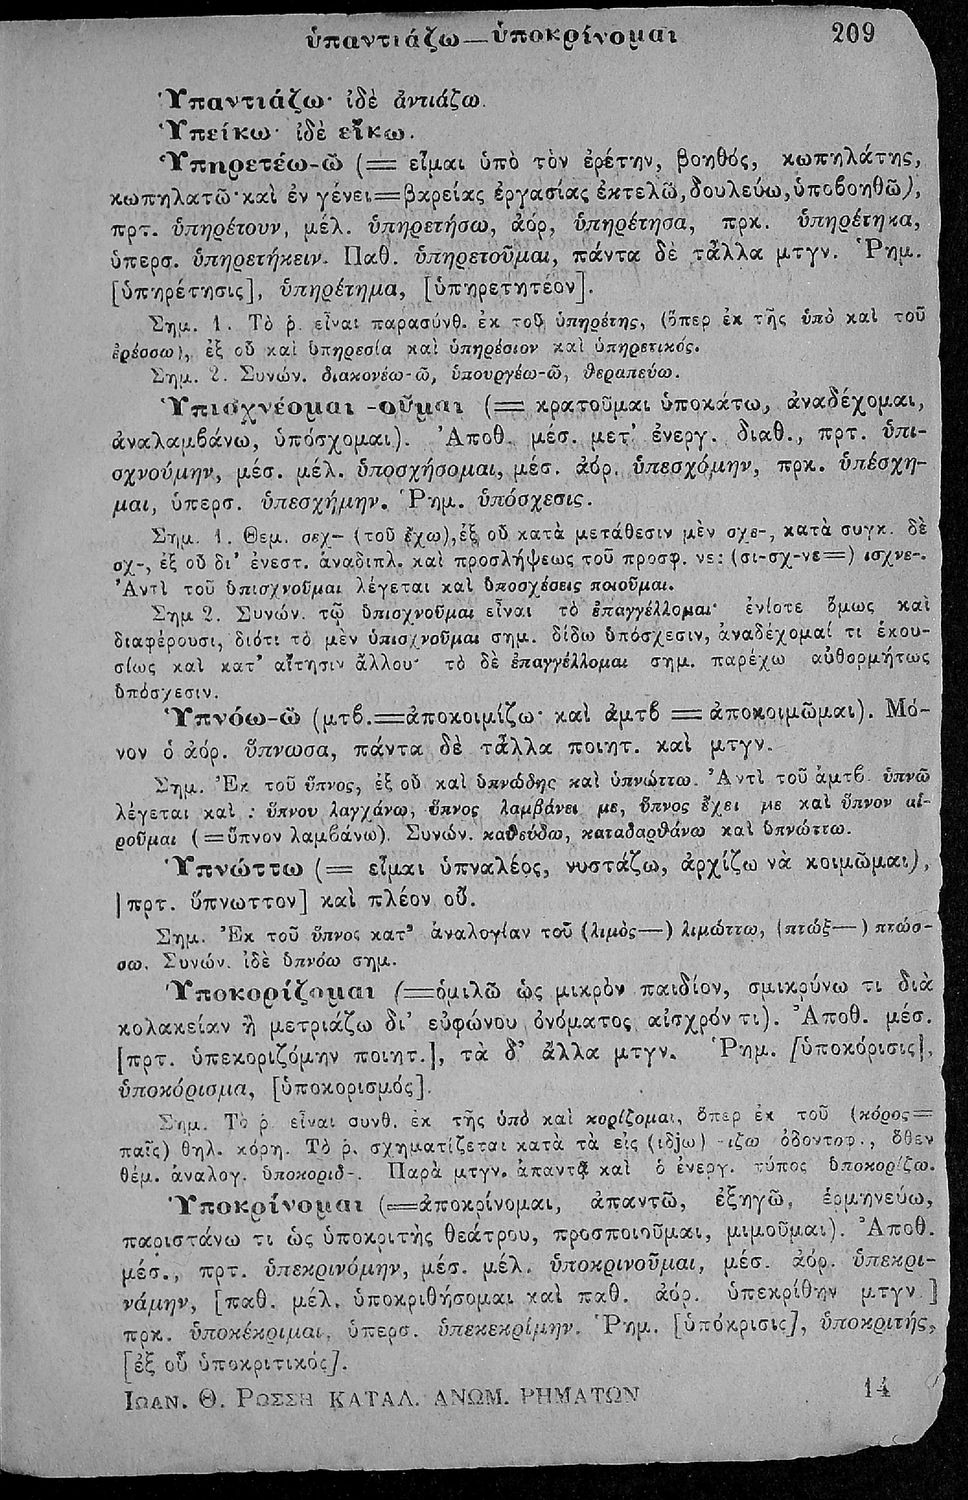 ὑπαντιάζω—ὑποκρίνομαι 209
Ὑπαντιάζω· ἰδὲ ἀντιάζω.
Ὑπείκω· ἰδὲ εἴκω.
Ὑπηρετέω-ῶ (= εἶμαι ὑπὸ τὸν ἐρέτην, βοηθός, κωπηλάτης,
κωπηλατῶ· καὶ ἐν γένει=βαρείας ἐργασίας ἐκτελῶ, δουλεύω, ὑποβοηθῶ),
πρτ. ὑπηρέτουν, μέλ. ὑπηρετήσω, ἀόρ. ὑπηρέτησα, πρκ. ὑπηρέτηκα,
ὑπερσ. ὑπηρετήκειν. Παθ. ὑπηρετοῦμαι, πάντα δὲ τἆλλα μτγν. Ῥημ.
[ὑπηρέτησις], ὑπηρέτημα, [ὑπηρετητέον].
Σημ. 1. Τὸ ῥ. εἶναι παρασύνθ. ἐκ τοῦ ὑπηρέτης, (ὅπερ ἐκ τῆς ὑπὸ καὶ τοῦ
ἐρέσσω), ἐξ οὗ καὶ ὑπηρεσία καὶ ὑπηρέσιον καὶ ὑπηρετικός.
Σημ. 2. Συνών. διακονέω-ῶ, ὑπουργέω-ῶ, θεραπεύω.
Ὑπισχνέομαι -οῦμαι (= κρατοῦμαι ὑποκάτω, ἀναδέχομαι,
ἀναλαμβάνω, ὑπόσχομαι). Ἀποθ. μέσ. μετ' ἐνεργ. διαθ., πρτ. ὑπι-
σχνούμην, μέσ. μέλ. ὑποσχήσομαι, μέσ. ἀόρ. ὑπεσχόμην, πρκ. ὑπέσχη-
μαι, ὑπερσ. ὑπεσχήμην. Ῥημ. ὑπόσχεσις.
Σημ. 1. Θεμ. σεχ- (τοῦ ἔχω), ἐξ οὗ κατὰ μετάθεσιν μὲν σχε-, κατὰ συγκ. δὲ
σχ-, ἐξ οὗ δι' ἐνεστ. ἀναδιπλ. καὶ προσλήψεως τοῦ προσφ. νε: (σι-σχ-νε=) ισχνε-.
Ἀντὶ τοῦ ὑπισχνοῦμαι λέγεται καὶ ὑποσχέσεις ποιοῦμαι.
Σημ 2. Συνών. τῷ ὑπισχνοῦμαι εἶναι τὸ ἐπαγγέλλομαι· ἐνίοτε ὅμως καὶ
διαφέρουσι, διότι τὸ μὲν ὑπισχνοῦμαι σημ. δίδω ὑπόσχεσιν, ἀναδέχομαί τι ἑκου-
σίως καὶ κατ' αἴτησιν ἄλλου· τὸ δὲ ἐπαγγέλλομαι σημ. παρέχω αὐθορμήτως
ὑπόσχεσιν.
Ὑπνόω-ῶ (μτβ.=ἀποκοιμίζω· καὶ ἀμτβ = ἀποκοιμῶμαι). Μό-
νον ὁ ἀόρ. ὕπνωσα, πάντα δὲ τἆλλα ποιητ. καὶ μτγν.
Σημ. Ἐκ τοῦ ὕπνος, ἐξ οὗ καὶ ὑπνώδης καὶ ὑπνώττω. Ἀντὶ τοῦ ἀμτβ. ὑπνῶ
λέγεται καὶ : ὕπνου λαγχάνω, ὕπνος λαμβάνει με, ὕπνος ἔχει με καὶ ὕπνον αἱ-
ροῦμαι (=ὕπνον λαμβάνω). Συνών. καθεύδω, καταδαρθάνω καὶ ὑπνώττω.
Ὑπνώττω (= εἶμαι ὑπναλέος, νυστάζω, ἀρχίζω νὰ κοιμῶμαι),
[πρτ. ὕπνωττον] καὶ πλέον οὔ.
Σημ. Ἐκ τοῦ ὕπνος κατ' ἀναλογίαν τοῦ (λιμὸς—) λιμώττω, (πτώξ—) πτώσ-
σω. Συνών. ἰδὲ ὑπνόω σημ.
Ὑποκορίζομαι (=ὁμιλῶ ὡς μικρὸν παιδίον, σμικρύνω τι διὰ
κολακείαν ἢ μετριάζω δι' εὐφώνου ὀνόματος αἰσχρόν τι). Ἀποθ. μέσ.
[πρτ. ὑπεκοριζόμην ποιητ.], τὰ δ' ἄλλα μτγν. Ῥημ. [ὑποκόρισις],
ὑποκόρισμα, [ὑποκορισμός].
Σημ. Τὸ ῥ. εἶναι συνθ. ἐκ τῆς ὑπὸ καὶ κορίζομαι, ὅπερ ἐκ τοῦ (κόρος=
παῖς) θηλ. κόρη. Τὸ ῥ. σχηματίζεται κατὰ τὰ εἰς (ιδjω) -ιζω ὀδοντοφ., ὅθεν
θέμ. ἀναλογ. ὑποκοριδ-. Παρὰ μτγν. ἀπαντᾷ καὶ ὁ ἐνεργ. τύπος ὑποκορίζω.
Ὑποκρίνομαι (=ἀποκρίνομαι, ἀπαντῶ, ἐξηγῶ, ἑρμηνεύω,
παριστάνω τι ὡς ὑποκριτὴς θεάτρου, προσποιοῦμαι, μιμοῦμαι). Ἀποθ.
μέσ., πρτ. ὑπεκρινόμην, μέσ. μέλ. ὑποκρινοῦμαι, μέσ. ἀόρ. ὑπεκρι-
νάμην, [παθ. μέλ. ὑποκριθήσομαι καὶ παθ. ἀόρ. ὑπεκρίθην μτγν.]
πρκ. ὑποκέκριμαι, ὑπερσ. ὑπεκεκρίμην. Ῥημ. [ὑπόκρισις], ὑποκριτής,
[ἐξ οὗ ὑποκριτικός].
ΙΩΑΝ. Θ. ΡΩΣΣΗ ΚΑΤΑΛ. ΑΝΩΜ. ΡΗΜΑΤΩΝ 14